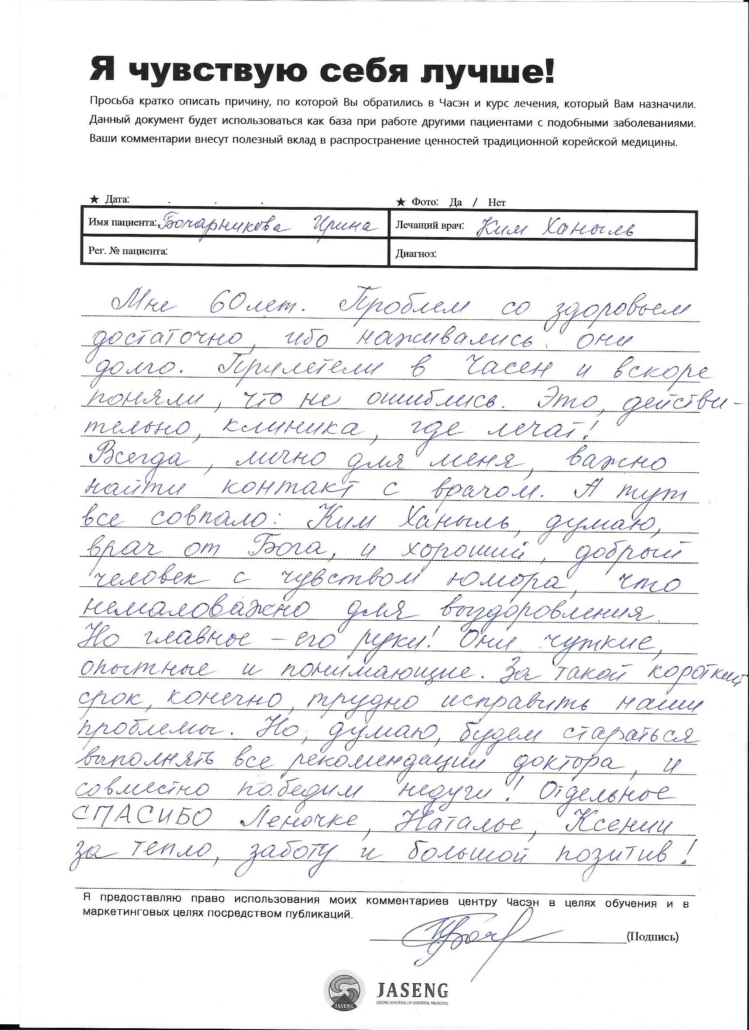 Я чувствую себя лучше!
Просьба кратко описать причину, по которой Вы обратились в Часэн и курс лечения, который Вам назначили.
Данный документ будет использоваться как база при работе другими пациентами с подобными заболеваниями.
Ваши комментарии внесут полезный вклад в распространение ценностей традиционной корейской медицины.
★ Дата: . . .
★ Фото: Да / Нет
Имя пациента: Бочарникова Ирина
Лечащий врач: Ким Ханыль
Рег. № пациента:
Диагноз:
Мне 60 лет. Проблем со здоровьем
достаточно, ибо наживались они
долго. Прилетели в Часен и вскоре
поняли, что не ошиблись. Это, действи-
тельно, клиника, где лечат!
Всегда, лично для меня, важно
найти контакт с врачом. А тут
все совпало: Ким Ханыль, думаю,
врач от Бога, и хороший, добрый
человек с чувством юмора, что
немаловажно для выздоровления.
Но главное – его руки! Они чуткие,
опытные и понимающие. За такой короткий
срок, конечно, трудно исправить наши
проблемы. Но, думаю, будем стараться
выполнять все рекомендации доктора, и
совместно победим недуги! Отдельное
СПАСИБО Леночке, Наталье, Ксении
за тепло, заботу и большой позитив!
Я предоставляю право использования моих комментариев центру Часэн в целях обучения и в
маркетинговых целях посредством публикаций.
(Подпись)
JASENG